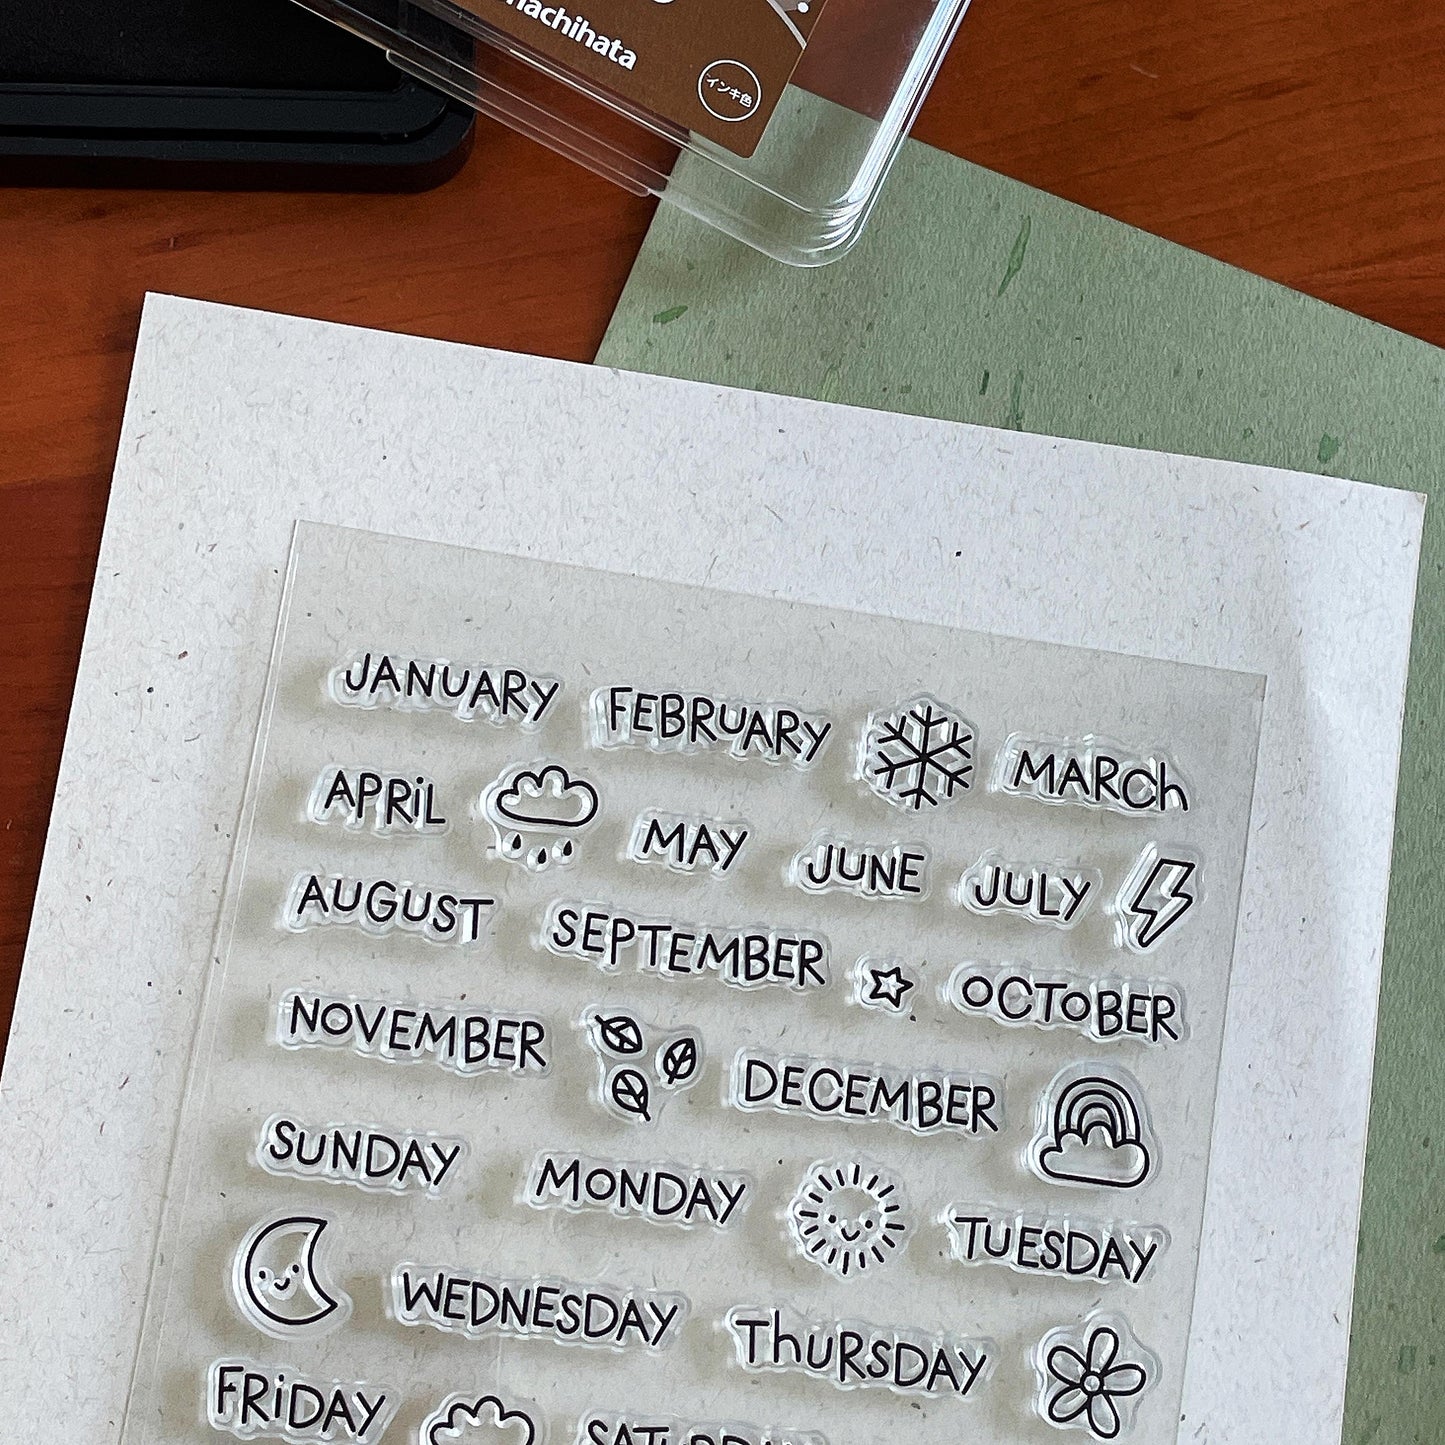 hachihata
インキ色
JANUARY FEBRUARY MARCh
APRiL MAY JUNE JULY
AUGUST SEPTEMBER OCTOBER
NOVEMBER DECEMBER
SUNDAY MONDAY TUESDAY
WEDNESDAY ThURSDAY
FRiDAY SATURDAY